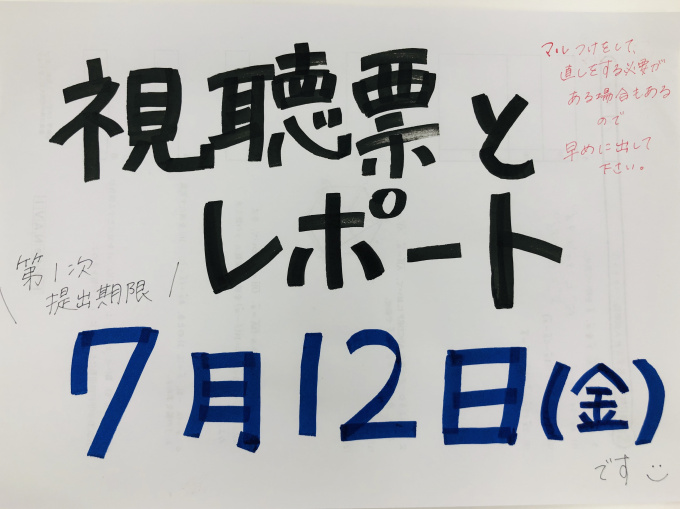 視聴票と
レポート
マルつけをして、
直しをする必要が
ある場合もある
ので
早めに出して
下さい。
第1次
提出期限
7月12日(金)
です